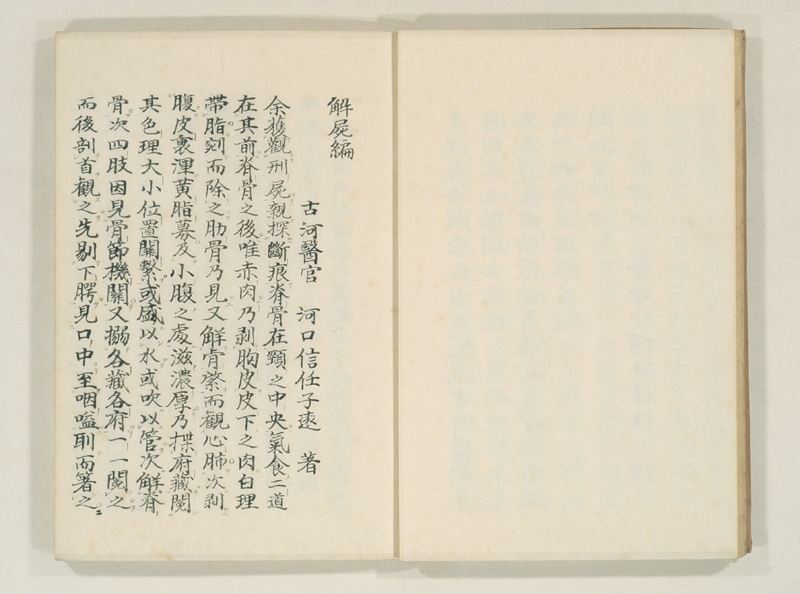 解屍編
古河醫官 河口信任子遠 著
余獲觀刑屍親探斷痕脊骨在頸之中央氣食二道
在其前脊骨之後唯赤肉乃剥胸皮皮下之肉白理
帶脂剜而除之肋骨乃見又解骨綮而觀心肺次剥
腹皮裏渾黄脂募及小腹之處滋濃厚乃揲府藏閲
其色理大小位置關繫或盛以水或吹以管次解脊
骨次四肢因見骨節機關又搦各藏各府一一閲之
而後剖首觀之先剔下腭見口中至咽嗌刵而箸之